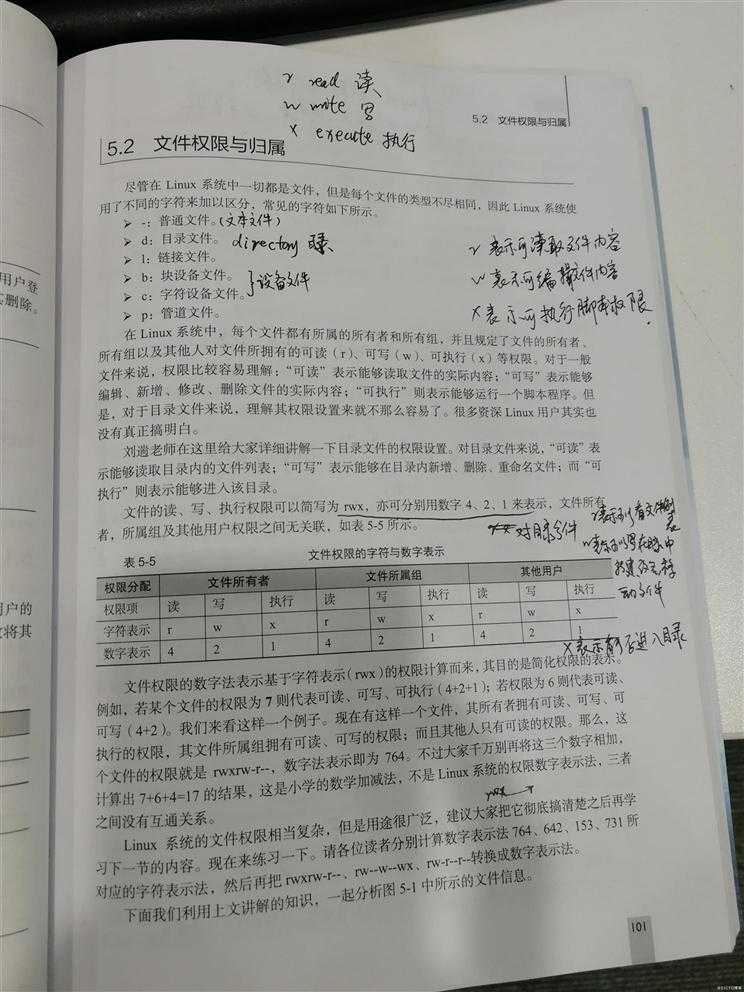 r read 读
w write 写
x execute 执行
5.2 文件权限与归属
5.2 文件权限与归属
尽管在 Linux 系统中一切都是文件，但是每个文件的类型不尽相同，因此 Linux 系统使
用了不同的字符来加以区分，常见的字符如下所示。
➢ -：普通文件。(文本文件)
➢ d：目录文件。 directory 目录
➢ l：链接文件。
➢ b：块设备文件。
➢ c：字符设备文件。
}设备文件
➢ p：管道文件。
r 表示可读取文件内容
w 表示可编辑文件内容
x 表示可执行脚本权限.
在 Linux 系统中，每个文件都有所属的所有者和所有组，并且规定了文件的所有者、
所有组以及其他人对文件所拥有的可读（r）、可写（w）、可执行（x）等权限。对于一般
文件来说，权限比较容易理解：“可读”表示能够读取文件的实际内容；“可写”表示能够
编辑、新增、修改、删除文件的实际内容；“可执行”则表示能够运行一个脚本程序。但
是，对于目录文件来说，理解其权限设置来就不那么容易了。很多资深 Linux 用户其实也
没有真正搞明白。
刘遄老师在这里给大家详细讲解一下目录文件的权限设置。对目录文件来说，“可读”表
示能够读取目录内的文件列表；“可写”表示能够在目录内新增、删除、重命名文件；而“可
执行”则表示能够进入该目录。
文件的读、写、执行权限可以简写为 rwx，亦可分别用数字 4、2、1 来表示，文件所有
者，所属组及其他用户权限之间无关联，如表 5-5 所示。
对目录文件
表 5-5 文件权限的字符与数字表示
权限分配 文件所有者 文件所属组 其他用户
权限项 读 写 执行 读 写 执行 读 写 执行
字符表示 r w x r w x r w x
数字表示 4 2 1 4 2 1 4 2 1
x 表示能否进入目录
文件权限的数字法表示基于字符表示（rwx）的权限计算而来，其目的是简化权限的表示。
例如，若某个文件的权限为 7 则代表可读、可写、可执行（4+2+1）；若权限为 6 则代表可读、
可写（4+2）。我们来看这样一个例子。现在有这样一个文件，其所有者拥有可读、可写、可
执行的权限，其文件所属组拥有可读、可写的权限；而且其他人只有可读的权限。那么，这
个文件的权限就是 rwxrw-r--，数字法表示即为 764。不过大家千万别再将这三个数字相加，
计算出 7+6+4=17 的结果，这是小学的数学加减法，不是 Linux 系统的权限数字表示法，三者
之间没有互通关系。
Linux 系统的文件权限相当复杂，但是用途很广泛，建议大家把它彻底搞清楚之后再学
习下一节的内容。现在来练习一下。请各位读者分别计算数字表示法 764、642、153、731 所
对应的字符表示法，然后再把 rwxrw-r--、rw--w--wx、rw-r--r--转换成数字表示法。
下面我们利用上文讲解的知识，一起分析图 5-1 中所示的文件信息。
101
用户登
其删除。
用户的
将其
@51CTO博客